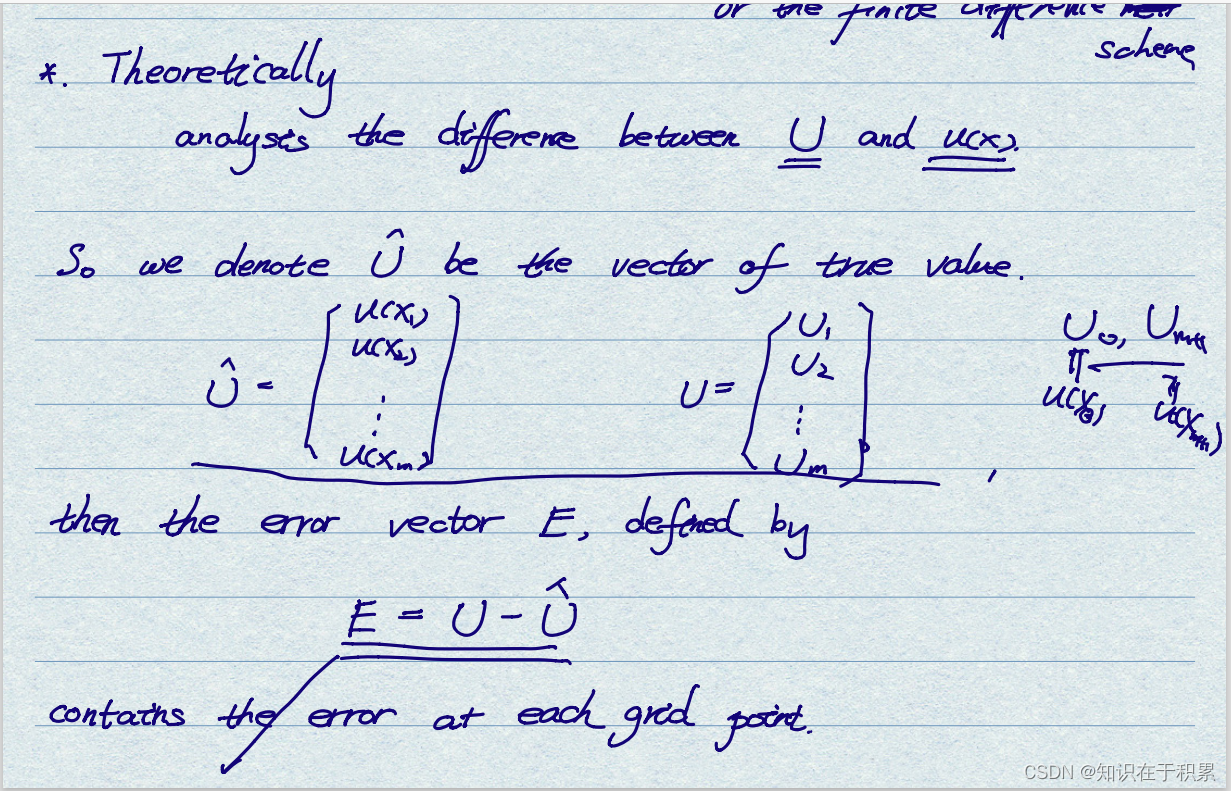 or the finite difference
scheme
*. Theoretically
analysis the difference between U and u(x).
So we denote Û be the vector of true value.
Û = [u(x₁) u(x₂) ⋮ u(xₘ)] U = [U₁ U₂ ⋮ Uₘ] U₀, Uₘ₊₁
u(x₀) u(xₘ₊₁)
then the error vector E, defined by
E = U - Û
contains the error at each grid point.
CSDN @知识在于积累